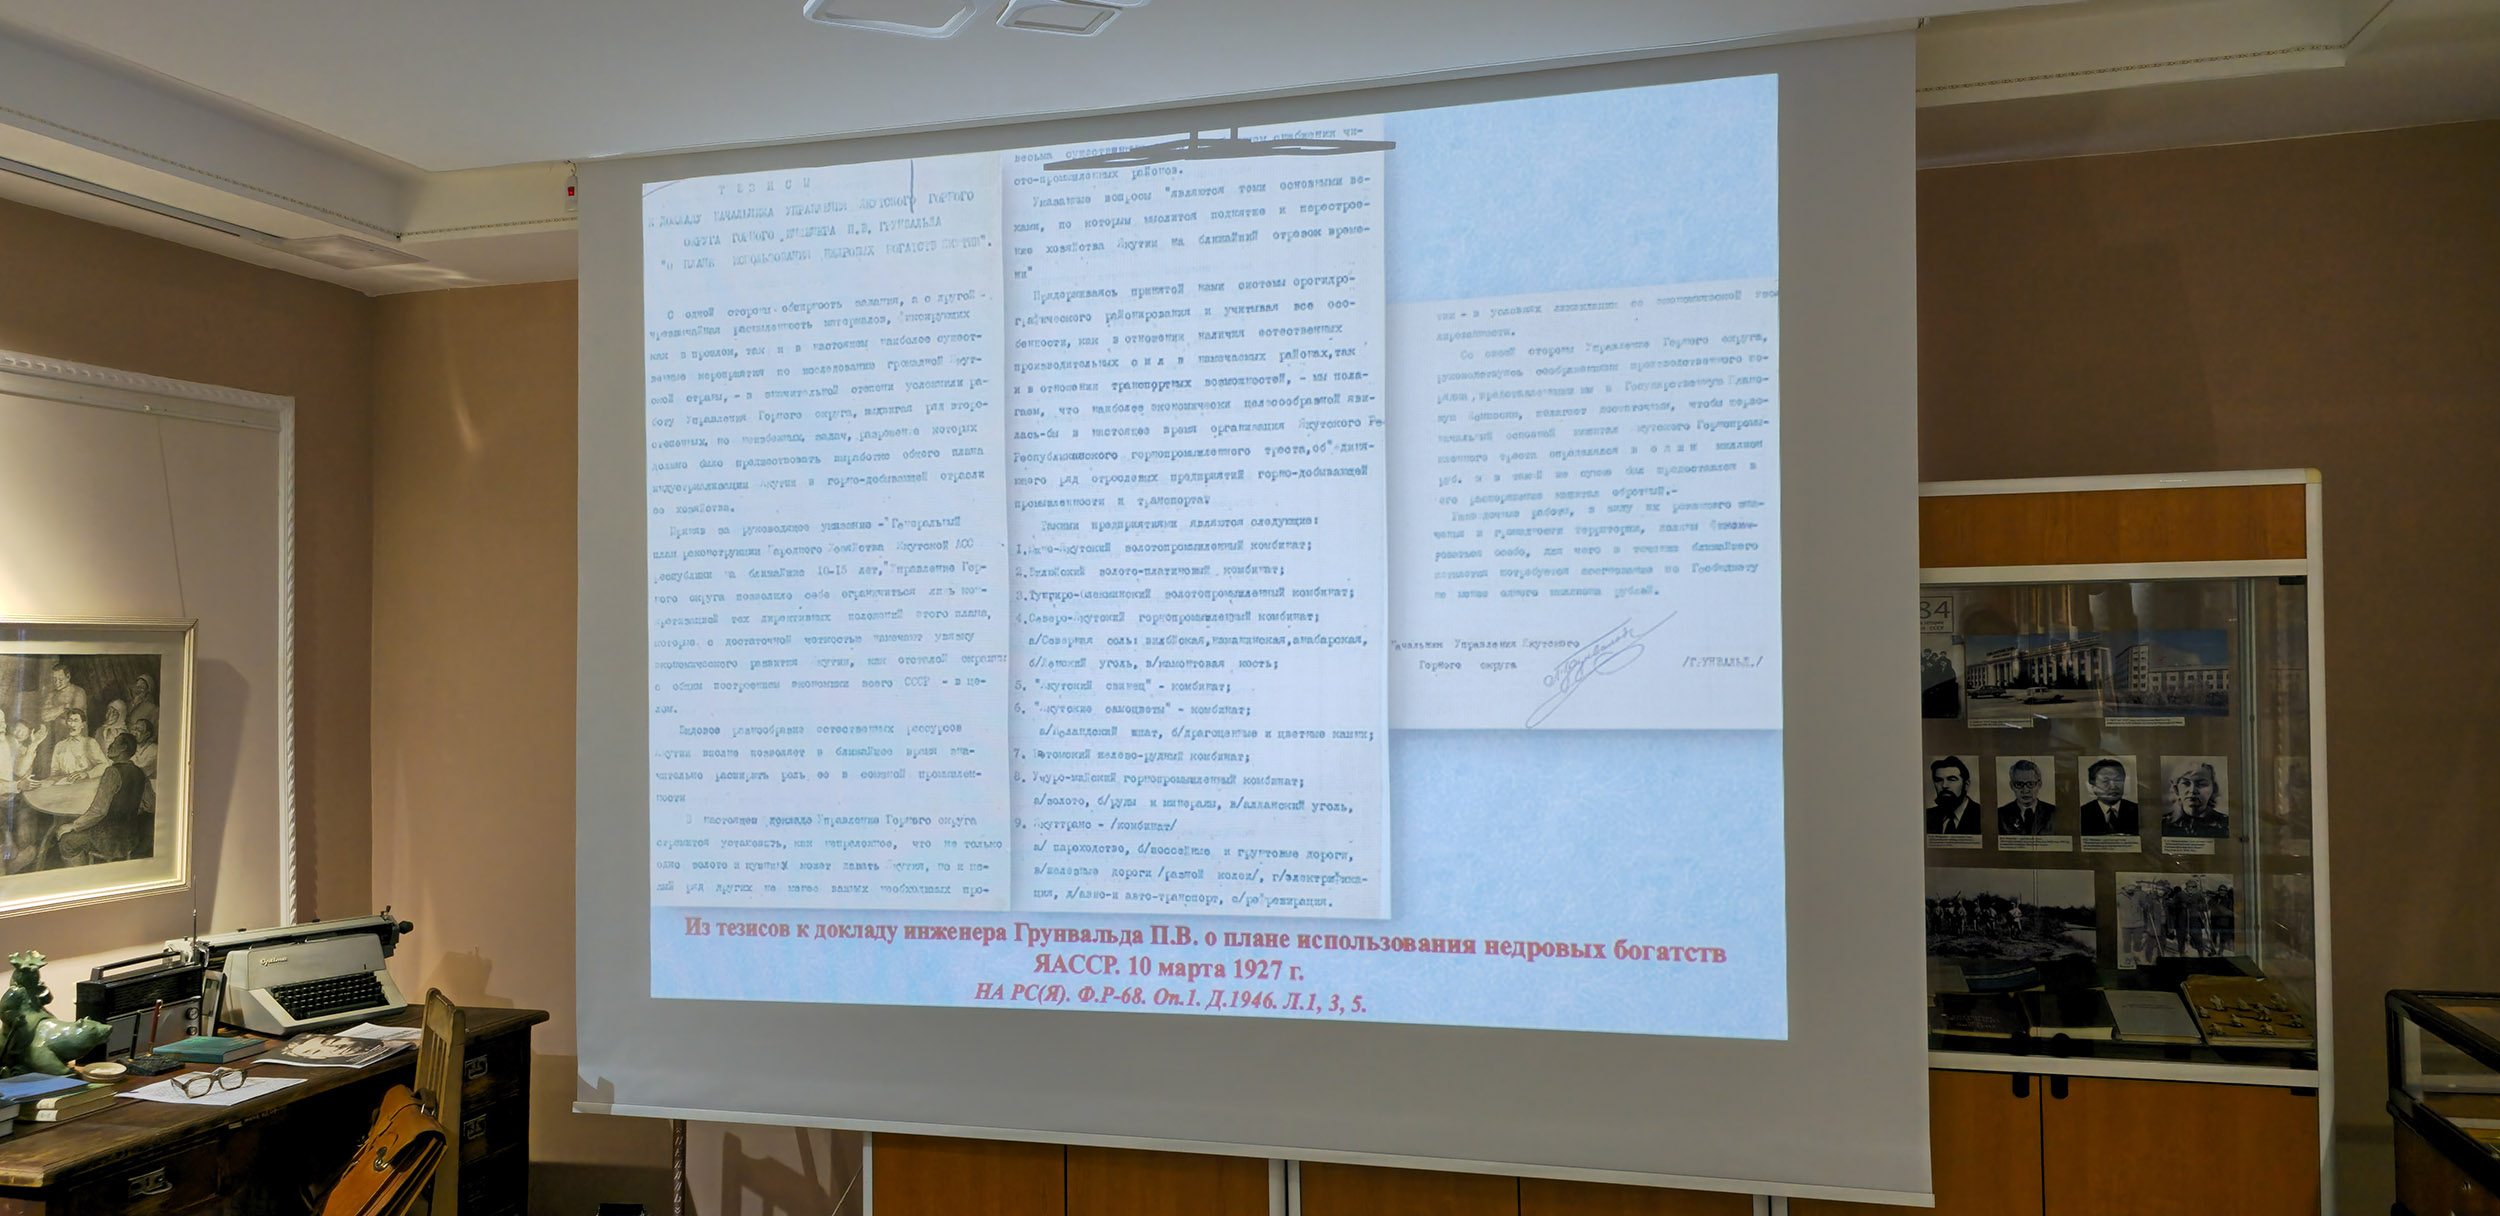 ТЕЗИСЫ
К ДОКЛАДУ НАЧАЛЬНИКА УПРАВЛЕНИЯ ЯКУТСКОГО ГОРНОГО
ОКРУГА ГОРНОГО ИНЖЕНЕРА П.В. ГРУНВАЛЬДА
"О ПЛАНЕ ИСПОЛЬЗОВАНИЯ НЕДРОВЫХ БОГАТСТВ ЯКУТИИ".
С одной стороны - обширность задания, а с другой -
чрезвычайная распыленность материалов, фиксирующих
как в прошлом, так и в настоящем наиболее сущест-
венные мероприятия по исследованию громадной Якут-
ской страны, - в значительной степени усложнили ра-
боту Управления Горного округа, выдвигая ряд второ-
степенных, но неизбежных, задач, разрешение которых
должно было предшествовать выработке общего плана
индустриализации Якутии в горно-добывающей отрасли
ее хозяйства.
Приняв за руководящее указание - "Генеральный
план реконструкции Народного Хозяйства Якутской АСС
Республики на ближайшие 10-15 лет," Управление Гор-
ного округа позволило себе ограничиться лишь кон-
кретизацией тех директивных положений этого плана,
которые с достаточной четкостью намечают увязку
экономического развития Якутии, как отсталой окраины
с общим построением экономики всего СССР - в це-
лом.
Видовое разнообразие естественных рессурсов
Якутии вполне позволяет в ближайшее время зна-
чительно расширить роль ее в союзной промышлен-
ности
В настоящем докладе Управление Горного округа
стремится установить, как непреложное, что не только
одно золото и пушнину может давать Якутия, но и це-
лый ряд других не менее важных необходимых про-
весьма существенных снабжении зо-
ото-промышленных районов.
Указанные вопросы "являются теми основными ве-
хами, по которым мыслится поднятие и перестрое-
ние хозяйства Якутии на ближайший отрезок време-
ни"
Придерживаясь принятой нами системы орогидро-
графического районирования и учитывая все осо-
бенности, как в отношении наличия естественных
производительных сил в намечаемых районах, так
и в отношении транспортных возможностей, - мы пола-
гаем, что наиболее экономически целесообразной яви-
лась-бы в настоящее время организация Якутского Ре
Республиканского горнопромышленного треста, об"единя-
ющего ряд отраслевых предприятий горно-добывающей
промышленности и транспорта.
Такими предприятиями являются следующие:
1. Южно-Якутский золотопромышленный комбинат;
2. Вилюйский золото-платиновый комбинат;
3. Тунгиро-Олекминский золотопромышленный комбинат;
4. Северо-Якутский горнопромышленный комбинат;
а/Северная соль: вилюйская, анабарская,
б/Ленский уголь, в/мамонтовая кость;
5. "Якутский свинец" - комбинат;
6. "Якутские самоцветы" - комбинат;
а/Исландский шпат, б/драгоценные и цветные камни;
7. Ботомский железо-рудный комбинат;
8. Учуро-майский горнопромышленный комбинат;
а/золото, б/руды и минералы, в/алданский уголь,
9. Якуттранс - /комбинат/
а/ пароходство, б/шоссейные и грунтовые дороги,
в/железные дороги /разной колеи/, г/электрифика-
ция, д/авио-и авто-транспорт, е/ре
тии - в условиях ликвидации ее экономической изо
лированности.
Со своей стороны Управление Горного округа,
руководствуясь соображениями производственного по-
рядка, представленными им в Государственную Плано-
вую Комиссию, полагает достаточным, чтобы перво-
начальный основной капитал Якутского Горнопромы-
шленного треста определялся в один миллион
руб. и в такой же сумме был предоставлен в
его распоряжение капитал оборотный.-
Разведочные работы, в виду их решающего зна-
чения и громадности территории, должны финанси-
роваться особо, для чего в течение ближайшего
пятилетия потребуется ассигнование по Госбюджету
не менее одного миллиона рублей.
Начальник Управления Якутского
Горного округа /ГРУНВАЛЬД./
Из тезисов к докладу инженера Грунвальда П.В. о плане использования недровых богатств
ЯАССР. 10 марта 1927 г.
НА РС(Я). Ф.Р-68. Оп.1. Д.1946. Л.1, 3, 5.
Optima
84